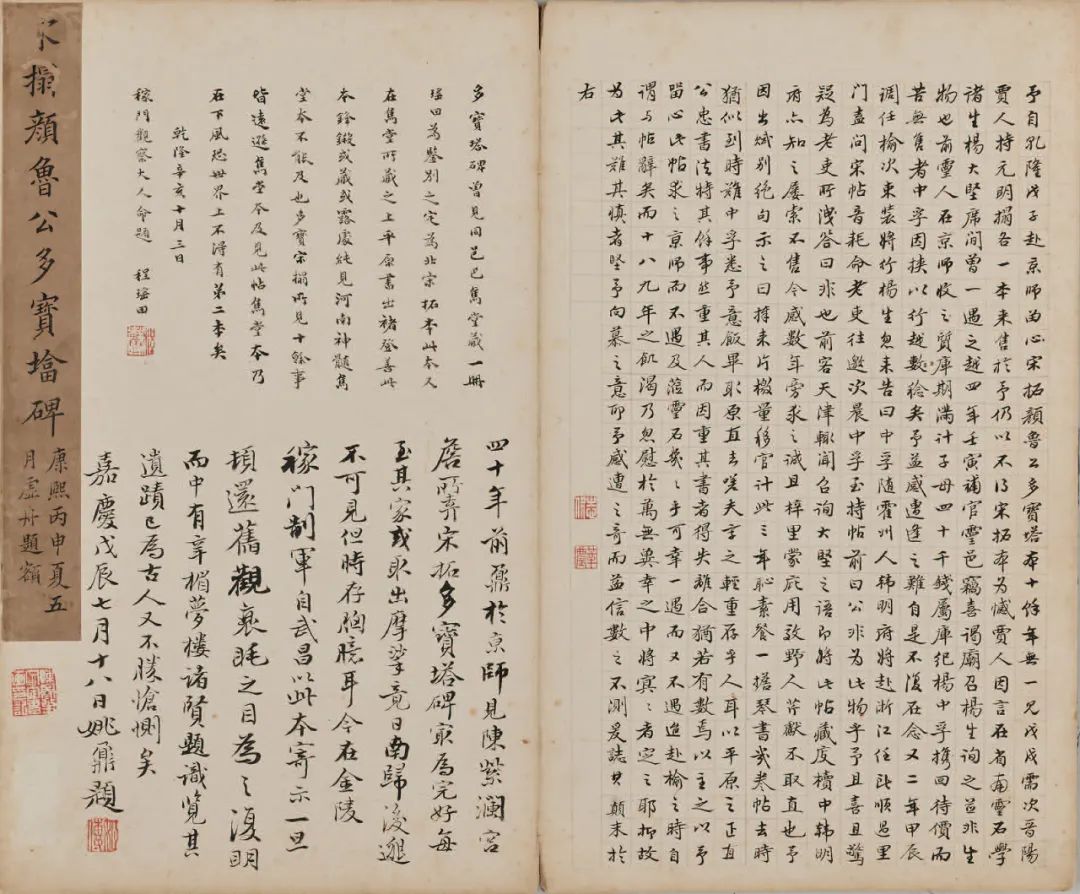 予自乾隆戊子赴京師留心宋拓顏魯公多寶塔本十餘年無一見戊戌需次晉陽
賈人持元明搨各一本來售於予仍以不得宋拓本為憾賈人因言在省南靈石學
諸生楊大堅席間曾一遇之越四年壬寅補官靈邑竊喜謁廟召楊生詢之並非生
物也前靈人在京師收之質庫期滿計子母四十千錢屬庫紀楊中孚攜回待價而
苦無售者中孚因挾以行越數稔矣予益感遭逢之難自是不復在念又二年甲辰
調任榆次束裝將行楊生忽來告曰中孚隨霍州人韓明府將赴浙江任此順過里
門盍問宋帖音耗命老吏往邀次晨中孚至持帖前曰公非為此物乎予且喜且驚
疑為老吏所洩答曰非也前客天津輒聞召詢大堅之語即將此帖藏庋櫝中韓明
府亦知之屢索不售今感數年旁求之誠且梓里蒙庇用效野人芹獻不取直也予
因出贐別絕句示之曰 量移官計此三年恥素餐一擔琴書幾卷帖去時
猶似到時難中孚悉予意飯畢取原直去嗟夫字之輕重存乎人耳以平原之正直
公忠書法特其餘事然重其人而因重其書者得失離合猶若有數焉以主之以予
留心此帖求之京師而不遇及蒞靈石幾幾乎可幸一遇而又不遇迨赴榆之時自
謂与帖辭矣而十八九年之飢渴乃忽慰於萬無冀幸之中將冥冥者定之耶抑故
為此其難其慎者堅予向慕之意耶予感遭之奇而益信數之不測爰誌其顛末於
右
多寶塔碑曾見同邑巴雋堂藏一冊
瑤田為鑒別之定為北宋拓本此本又
在雋堂所藏之上平原書出褚登善此
本鈐鍛或藏或露處純見河南神髓雋
堂本不能及也多寶宋搨所見十餘事
皆遠遜雋堂本及見此帖雋堂本乃
在下風恐世界上不得有第二本矣
乾隆辛亥十月三日
稼門觀察大人命題 程瑤田
四十年前鼐於京師見陳紫瀾宮
詹所弆宋拓多寶塔碑最為完好每
至其家或取出摩挲竟日南歸後邈
不可見但時存胸臆耳今在金陵
稼門制軍自武昌以此本寄示一旦
頓還舊觀衰眊之目為之復明
而中有辛楣夢樓諸賢題識覽其
遺蹟已為古人又不勝愴惻矣
嘉慶戊辰七月十八日姚鼐題
宋搨顏魯公多寶塔碑
康熙丙申夏五
月虛舟題額